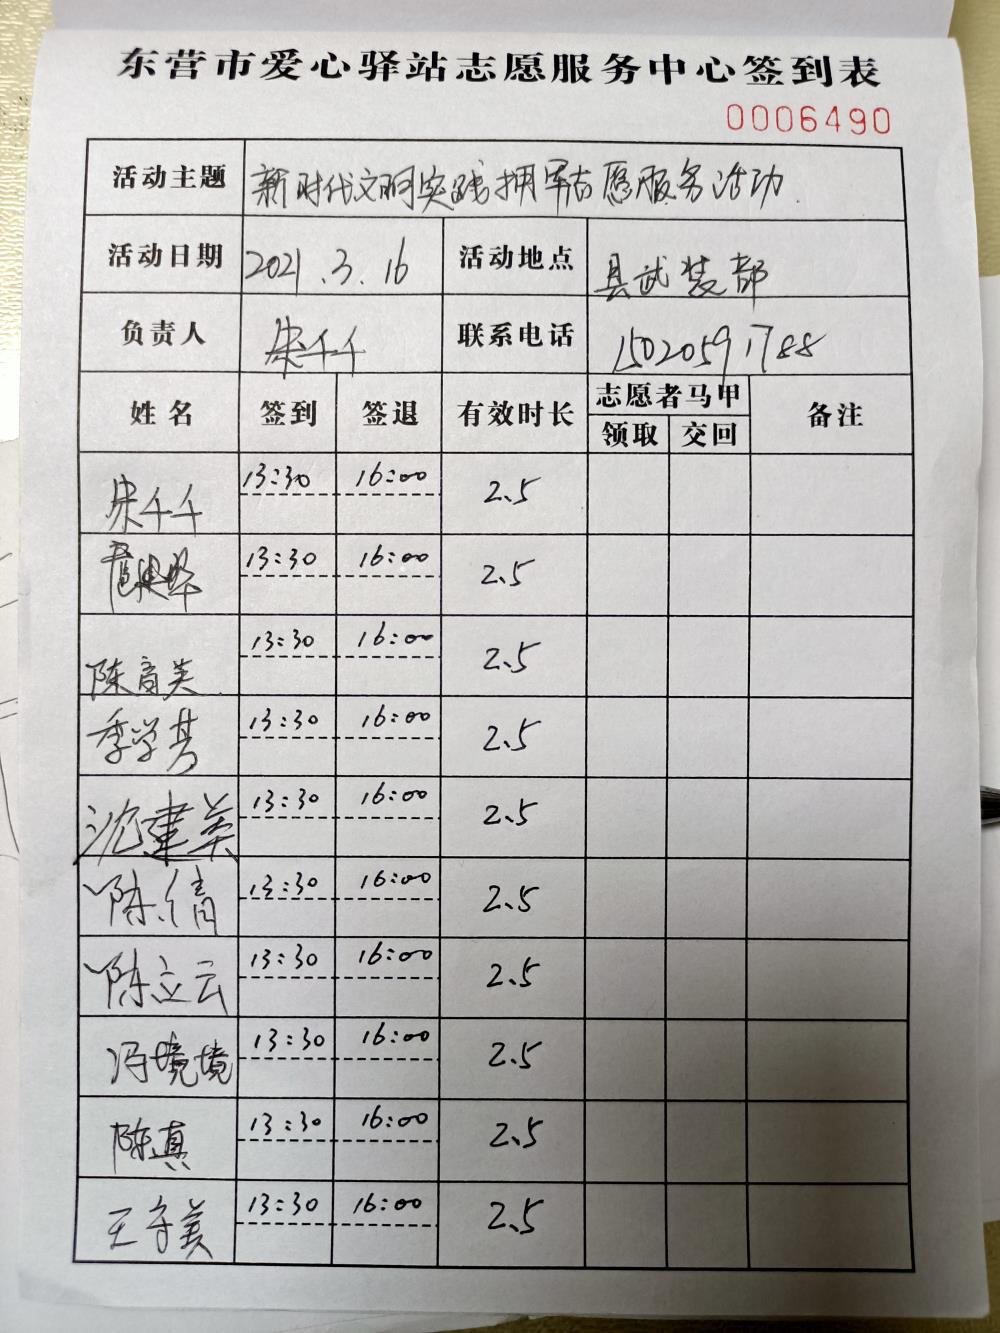 东营市爱心驿站志愿服务中心签到表
0006490
活动主题 新时代文明实践拥军志愿服务活动
活动日期 2021.3.16 活动地点 县武装部
负责人 朱千千 联系电话 15020591788
姓名 签到 签退 有效时长 志愿者马甲 备注
领取 交回
朱千千 13:30 16:00 2.5
13:30 16:00 2.5
陈育美 13:30 16:00 2.5
季学芳 13:30 16:00 2.5
沈建英 13:30 16:00 2.5
陈倩 13:30 16:00 2.5
陈立云 13:30 16:00 2.5
冯境境 13:30 16:00 2.5
陈真 13:30 16:00 2.5
王守美 13:30 16:00 2.5